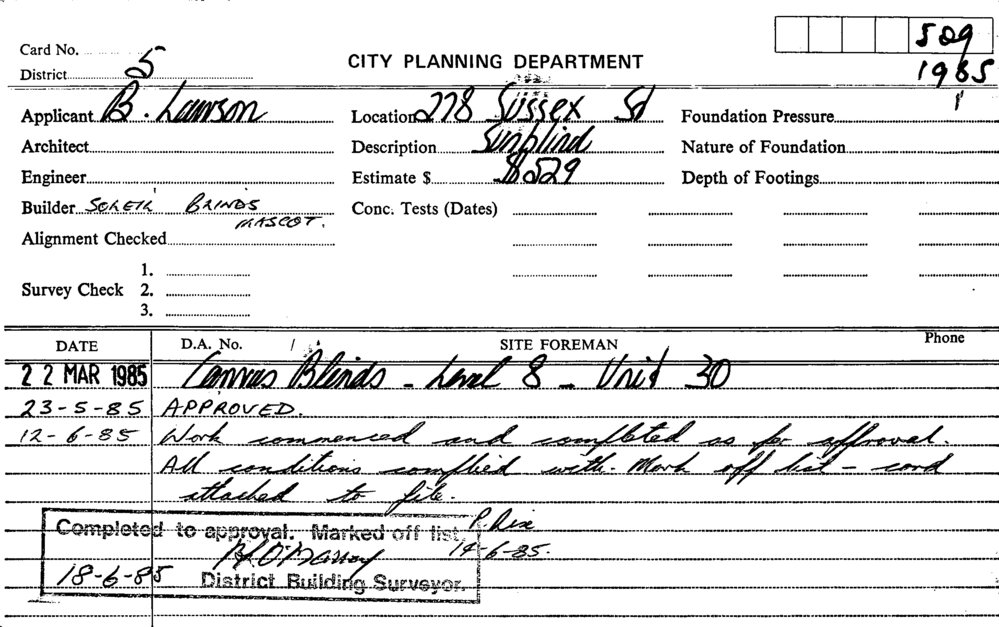 Card No.
509
District 5
CITY PLANNING DEPARTMENT
1985
Applicant B. Lawson
Location 278 Sussex St
Foundation Pressure
Architect
Description Sunblind
Nature of Foundation
Engineer
Estimate $ $529
Depth of Footings
Builder BLINDS
MASCOT.
Conc. Tests (Dates)
Alignment Checked
1.
Survey Check 2.
3.
DATE D.A. No. / SITE FOREMAN Phone
22 MAR 1985 Canvas Blinds - Level 8 - Unit 30
23-5-85 APPROVED.
12-6-85 Work commenced and completed as per approval.
All conditions complied with. Mark off list - card
attached to file.
Completed to approval. Marked off list.
P. Rix
14-6-85.
18-6-85 District Building Surveyor.